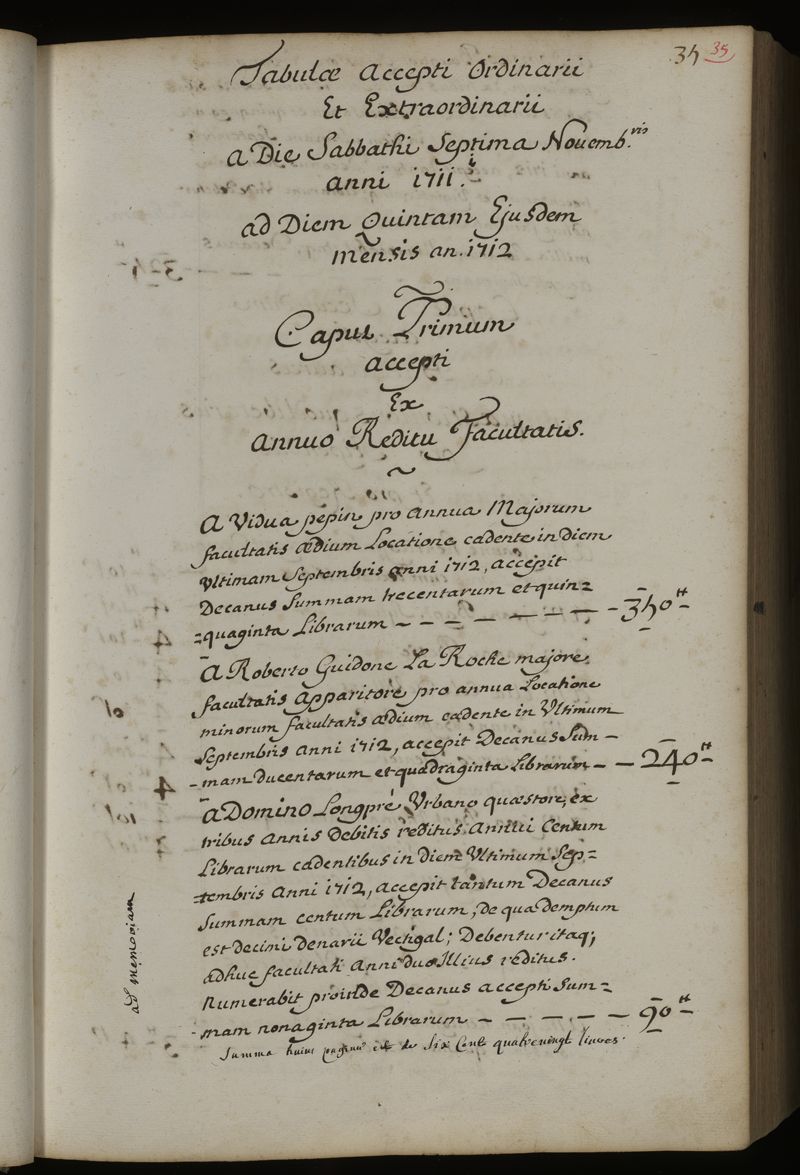 35 35
Tabulæ accepti Ordinarii
Et Extraordinarii
a Die Sabbathi Septima Novemb.ris
anni 1711.
ad Diem Quintam Ejusdem
mensis an. 1712
Caput Primum
accepti
Ex
annuo Reditu Facultatis.
A Vidua pepin pro annua Majorum
facultatis ædium Locatione cadente in Diem
Ultimam Septembris anni 1712, accepit
Decanus Summam trecentarum et quin=
=quaginta Librarum - - - - - - - - 350 tt
A Roberto Guidone La Roche majore
facultatis apparitore pro annua Locatione
minorum facultatis ædium cadente in Ultimum
Septembris anni 1712, accepit Decanus Sum-
-mam ducentarum et quadraginta Librarum - - 240 tt
A Domino Longpré Urbano quæstore, ex
tribus annis Debitis reditus annui Centum
Librarum cadentibus in diem Ultimum Sep=
=tembris anni 1712, accepit tantum Decanus
Summam centum Librarum, de qua demptum
est decimi denarii Vectigal; Debentur itaq;
adhuc facultati anni duo Illius reditus.
Numerabit proinde Decanus accepti Sum=
-mam nonaginta Librarum - - - - - 90 tt
Summa huius paginæ est de Six Cent quatrevingt livres.
ad memoriam